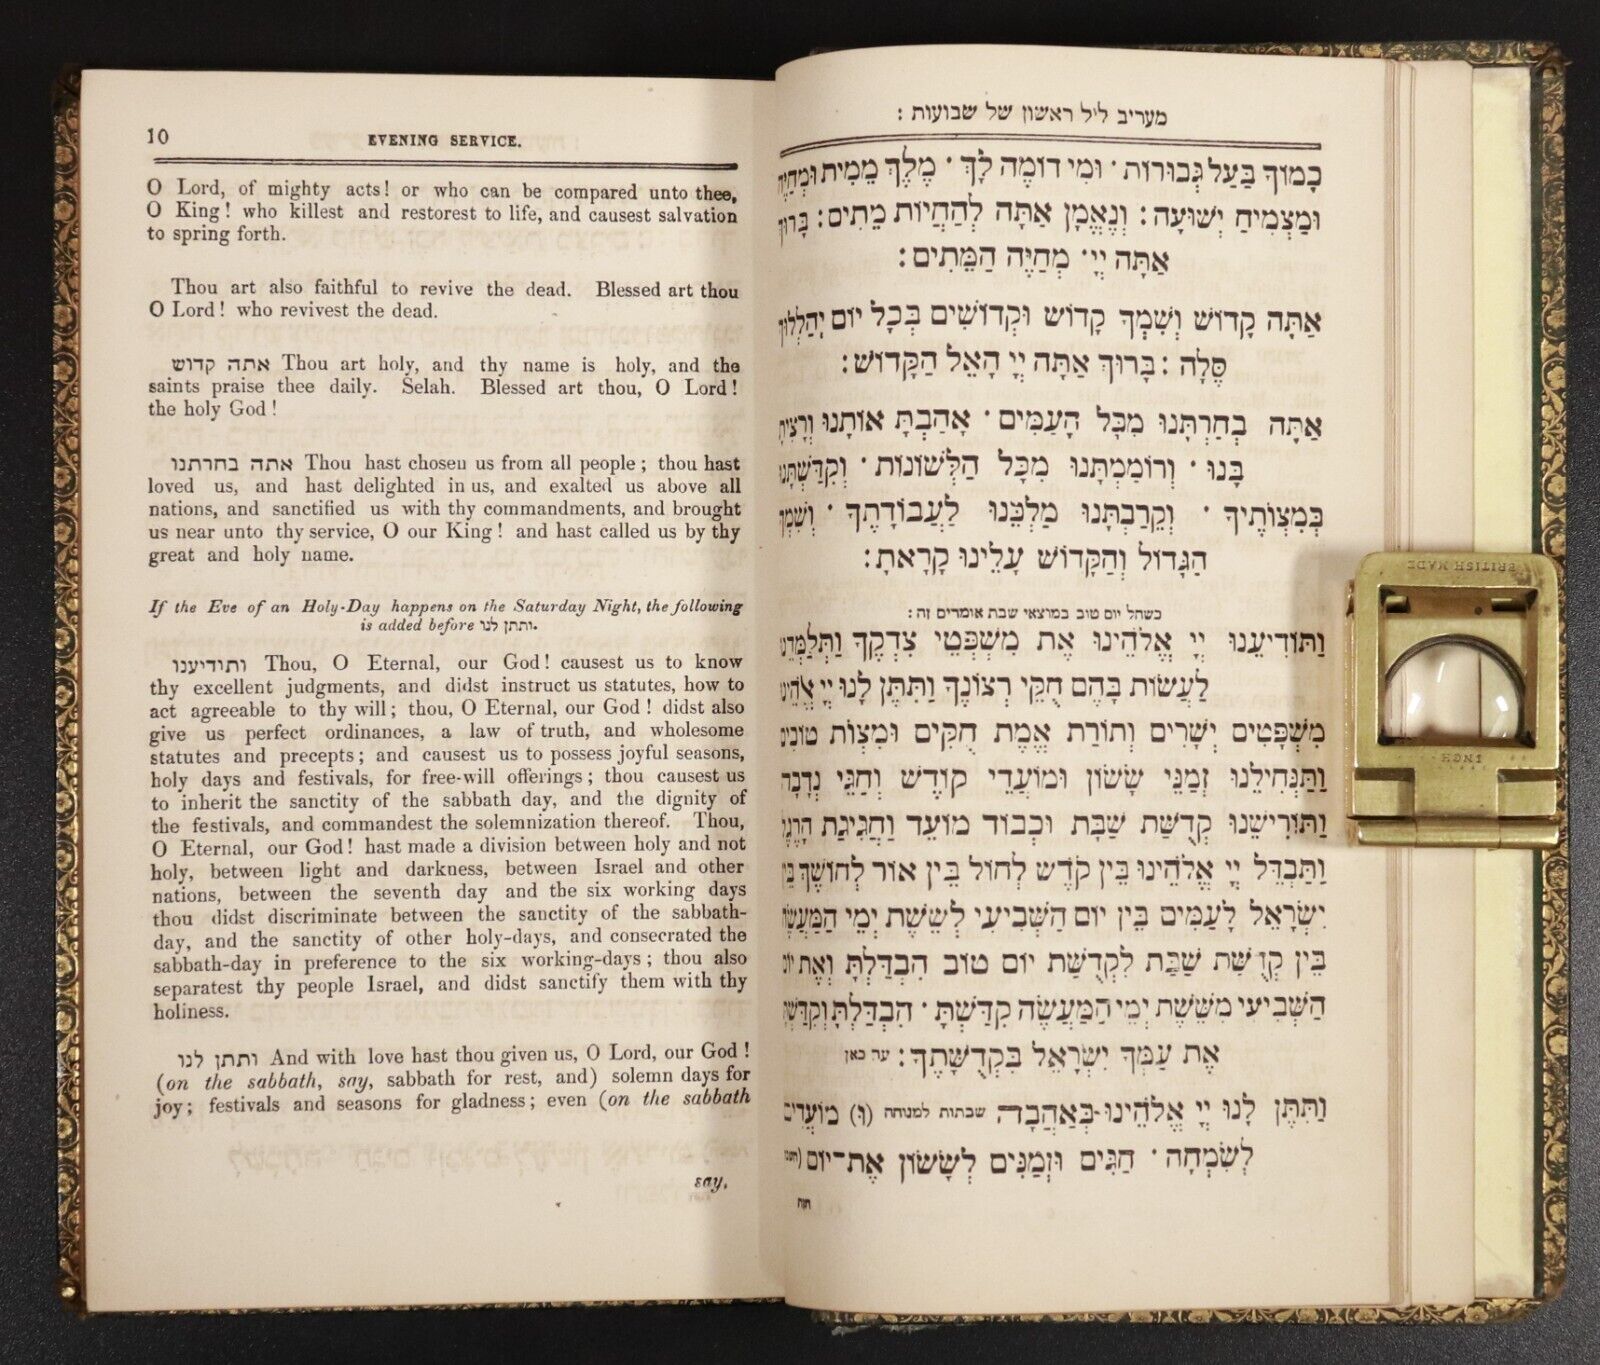 10
EVENING SERVICE.
O Lord, of mighty acts! or who can be compared unto thee,
O King! who killest and restorest to life, and causest salvation
to spring forth.
Thou art also faithful to revive the dead. Blessed art thou
O Lord! who revivest the dead.
אתה קדוש Thou art holy, and thy name is holy, and the
saints praise thee daily. Selah. Blessed art thou, O Lord!
the holy God!
אתה בחרתנו Thou hast chosen us from all people; thou hast
loved us, and hast delighted in us, and exalted us above all
nations, and sanctified us with thy commandments, and brought
us near unto thy service, O our King! and hast called us by thy
great and holy name.
If the Eve of an Holy-Day happens on the Saturday Night, the following
is added before ותתן לנו.
ותודיענו Thou, O Eternal, our God! causest us to know
thy excellent judgments, and didst instruct us statutes, how to
act agreeable to thy will; thou, O Eternal, our God! didst also
give us perfect ordinances, a law of truth, and wholesome
statutes and precepts; and causest us to possess joyful seasons,
holy days and festivals, for free-will offerings; thou causest us
to inherit the sanctity of the sabbath day, and the dignity of
the festivals, and commandest the solemnization thereof. Thou,
O Eternal, our God! hast made a division between holy and not
holy, between light and darkness, between Israel and other
nations, between the seventh day and the six working days
thou didst discriminate between the sanctity of the sabbath-
day, and the sanctity of other holy-days, and consecrated the
sabbath-day in preference to the six working-days; thou also
separatest thy people Israel, and didst sanctify them with thy
holiness.
ותתן לנו And with love hast thou given us, O Lord, our God!
(on the sabbath, say, sabbath for rest, and) solemn days for
joy; festivals and seasons for gladness; even (on the sabbath
say,
מעריב ליל ראשון של שבועות:
כָמוֹךָ בַּעַל גְּבוּרוֹת · וּמִי דוֹמֶה לָּךְ · מֶלֶךְ מֵמִית וּמְחַיֶּה
וּמַצְמִיחַ יְשׁוּעָה: וְנֶאֱמָן אַתָּה לְהַחֲיוֹת מֵתִים: בָּרוּךְ
אַתָּה יְיָ · מְחַיֵּה הַמֵּתִים:
אַתָּה קָדוֹשׁ וְשִׁמְךָ קָדוֹשׁ וּקְדוֹשִׁים בְּכָל יוֹם יְהַלְלוּךָ
סֶּלָה: בָּרוּךְ אַתָּה יְיָ הָאֵל הַקָּדוֹשׁ:
אַתָּה בְחַרְתָּנוּ מִכָּל הָעַמִּים · אָהַבְתָּ אוֹתָנוּ וְרָצִיתָ
בָּנוּ · וְרוֹמַמְתָּנוּ מִכָּל הַלְּשׁוֹנוֹת · וְקִדַּשְׁתָּנוּ
בְּמִצְוֹתֶיךָ · וְקֵרַבְתָּנוּ מַלְכֵּנוּ לַעֲבוֹדָתֶךָ · וְשִׁמְךָ
הַגָּדוֹל וְהַקָּדוֹשׁ עָלֵינוּ קָרָאתָ:
כשחל יום טוב במוצאי שבת אומרים זה:
וַתּוֹדִיעֵנוּ יְיָ אֱלֹהֵינוּ אֶת מִשְׁפְּטֵי צִדְקֶךָ וַתְּלַמְּדֵנוּ
לַעֲשׂוֹת בָּהֶם חֻקֵּי רְצוֹנֶךָ וַתִּתֶּן לָנוּ יְיָ אֱלֹהֵינוּ
מִשְׁפָּטִים יְשָׁרִים וְתוֹרַת אֱמֶת חֻקִּים וּמִצְוֹת טוֹבִים
וַתַּנְחִילֵנוּ זְמַנֵּי שָׂשׂוֹן וּמוֹעֲדֵי קוֹדֶשׁ וְחַגֵּי נְדָבָה
וַתּוֹרִישֵׁנוּ קְדֻשַּׁת שַׁבָּת וּכְבוֹד מוֹעֵד וַחֲגִיגַת הָרֶגֶל
וַתַּבְדֵּל יְיָ אֱלֹהֵינוּ בֵּין קֹדֶשׁ לְחוֹל בֵּין אוֹר לְחוֹשֶׁךְ בֵּין
יִשְׂרָאֵל לָעַמִּים בֵּין יוֹם הַשְּׁבִיעִי לְשֵׁשֶׁת יְמֵי הַמַּעֲשֶׂה
בֵּין קְדֻשַּׁת שַׁבָּת לִקְדֻשַּׁת יוֹם טוֹב הִבְדַּלְתָּ וְאֶת יוֹם
הַשְּׁבִיעִי מִשֵּׁשֶׁת יְמֵי הַמַּעֲשֶׂה קִדַּשְׁתָּ · הִבְדַּלְתָּ וְקִדַּשְׁתָּ
אֶת עַמְּךָ יִשְׂרָאֵל בִּקְדֻשָּׁתֶךָ: עד כאן
וַתִּתֶּן לָנוּ יְיָ אֱלֹהֵינוּ בְּאַהֲבָה שבתות למנוחה (וּ) מוֹעֲדִים
לְשִׂמְחָה · חַגִּים וּזְמַנִּים לְשָׂשׂוֹן אֶת־יוֹם
BRITISH MADE
INCH